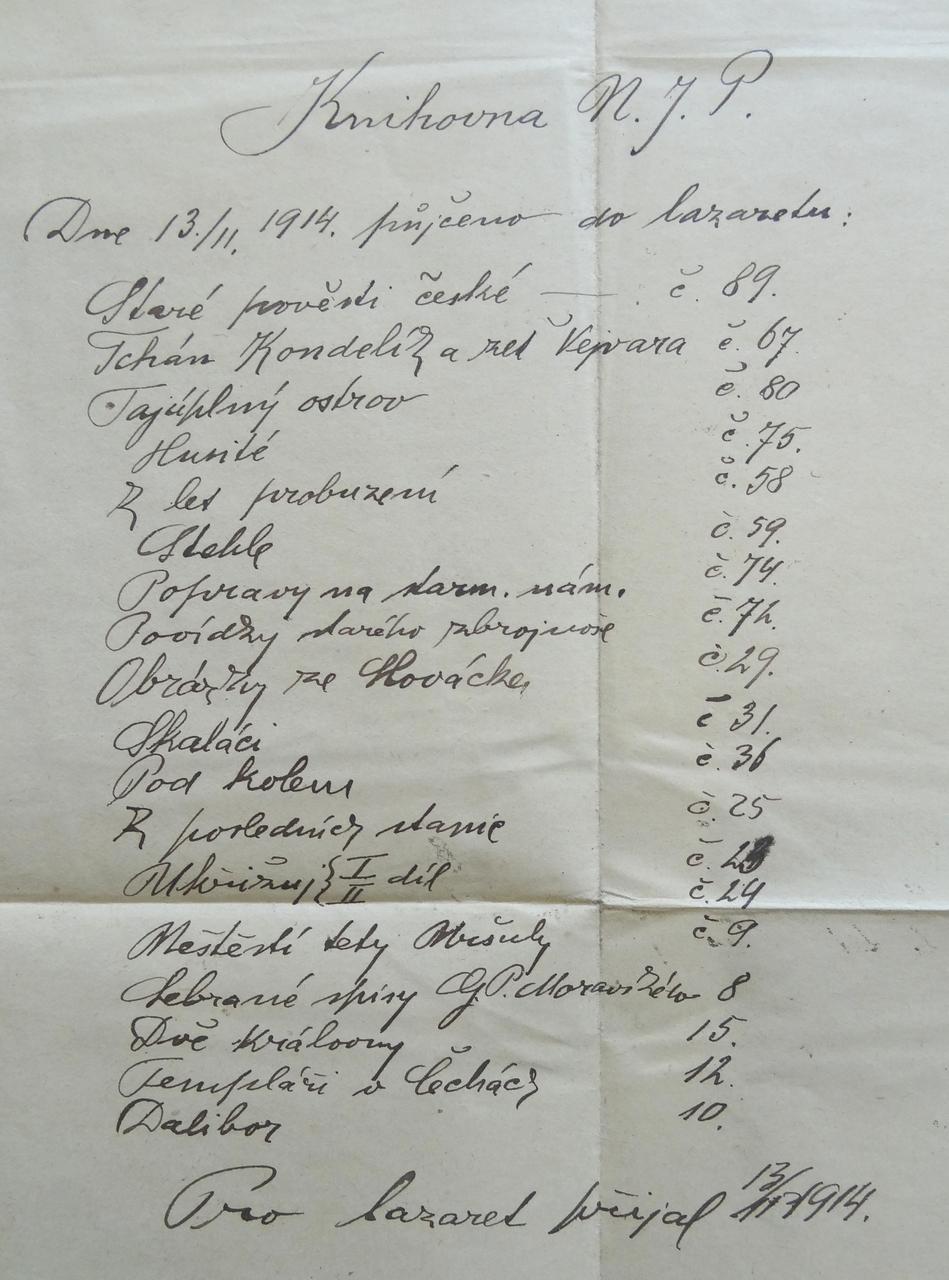 Knihovna N. J. P.
Dne 13./11. 1914. půjčeno do lazaretu:
Staré pověsti české — . č. 89.
Tchán Kondelík a zeť Vejvara č. 67.
Tajúplný ostrov č. 80
Husité č. 75.
Z let probuzení č. 58
Stehle č. 59.
Popravy na starm. nám. č. 74.
Povídky starého zbrojnoše č. 72.
Obrázky ze Slovácka č. 29.
Skaláci č. 31.
Pod kolem č. 36
Z posledních stanic č. 25
Ukřižuj } I díl č. 23
II č. 24
Neštěstí tety Uršuly č. 9.
Sebrané spisy G. P. Moravského 8
Dvě královny 15.
Templáři v Čechách 12.
Dalibor 10.
Pro lazaret přijal 13/11 1914.